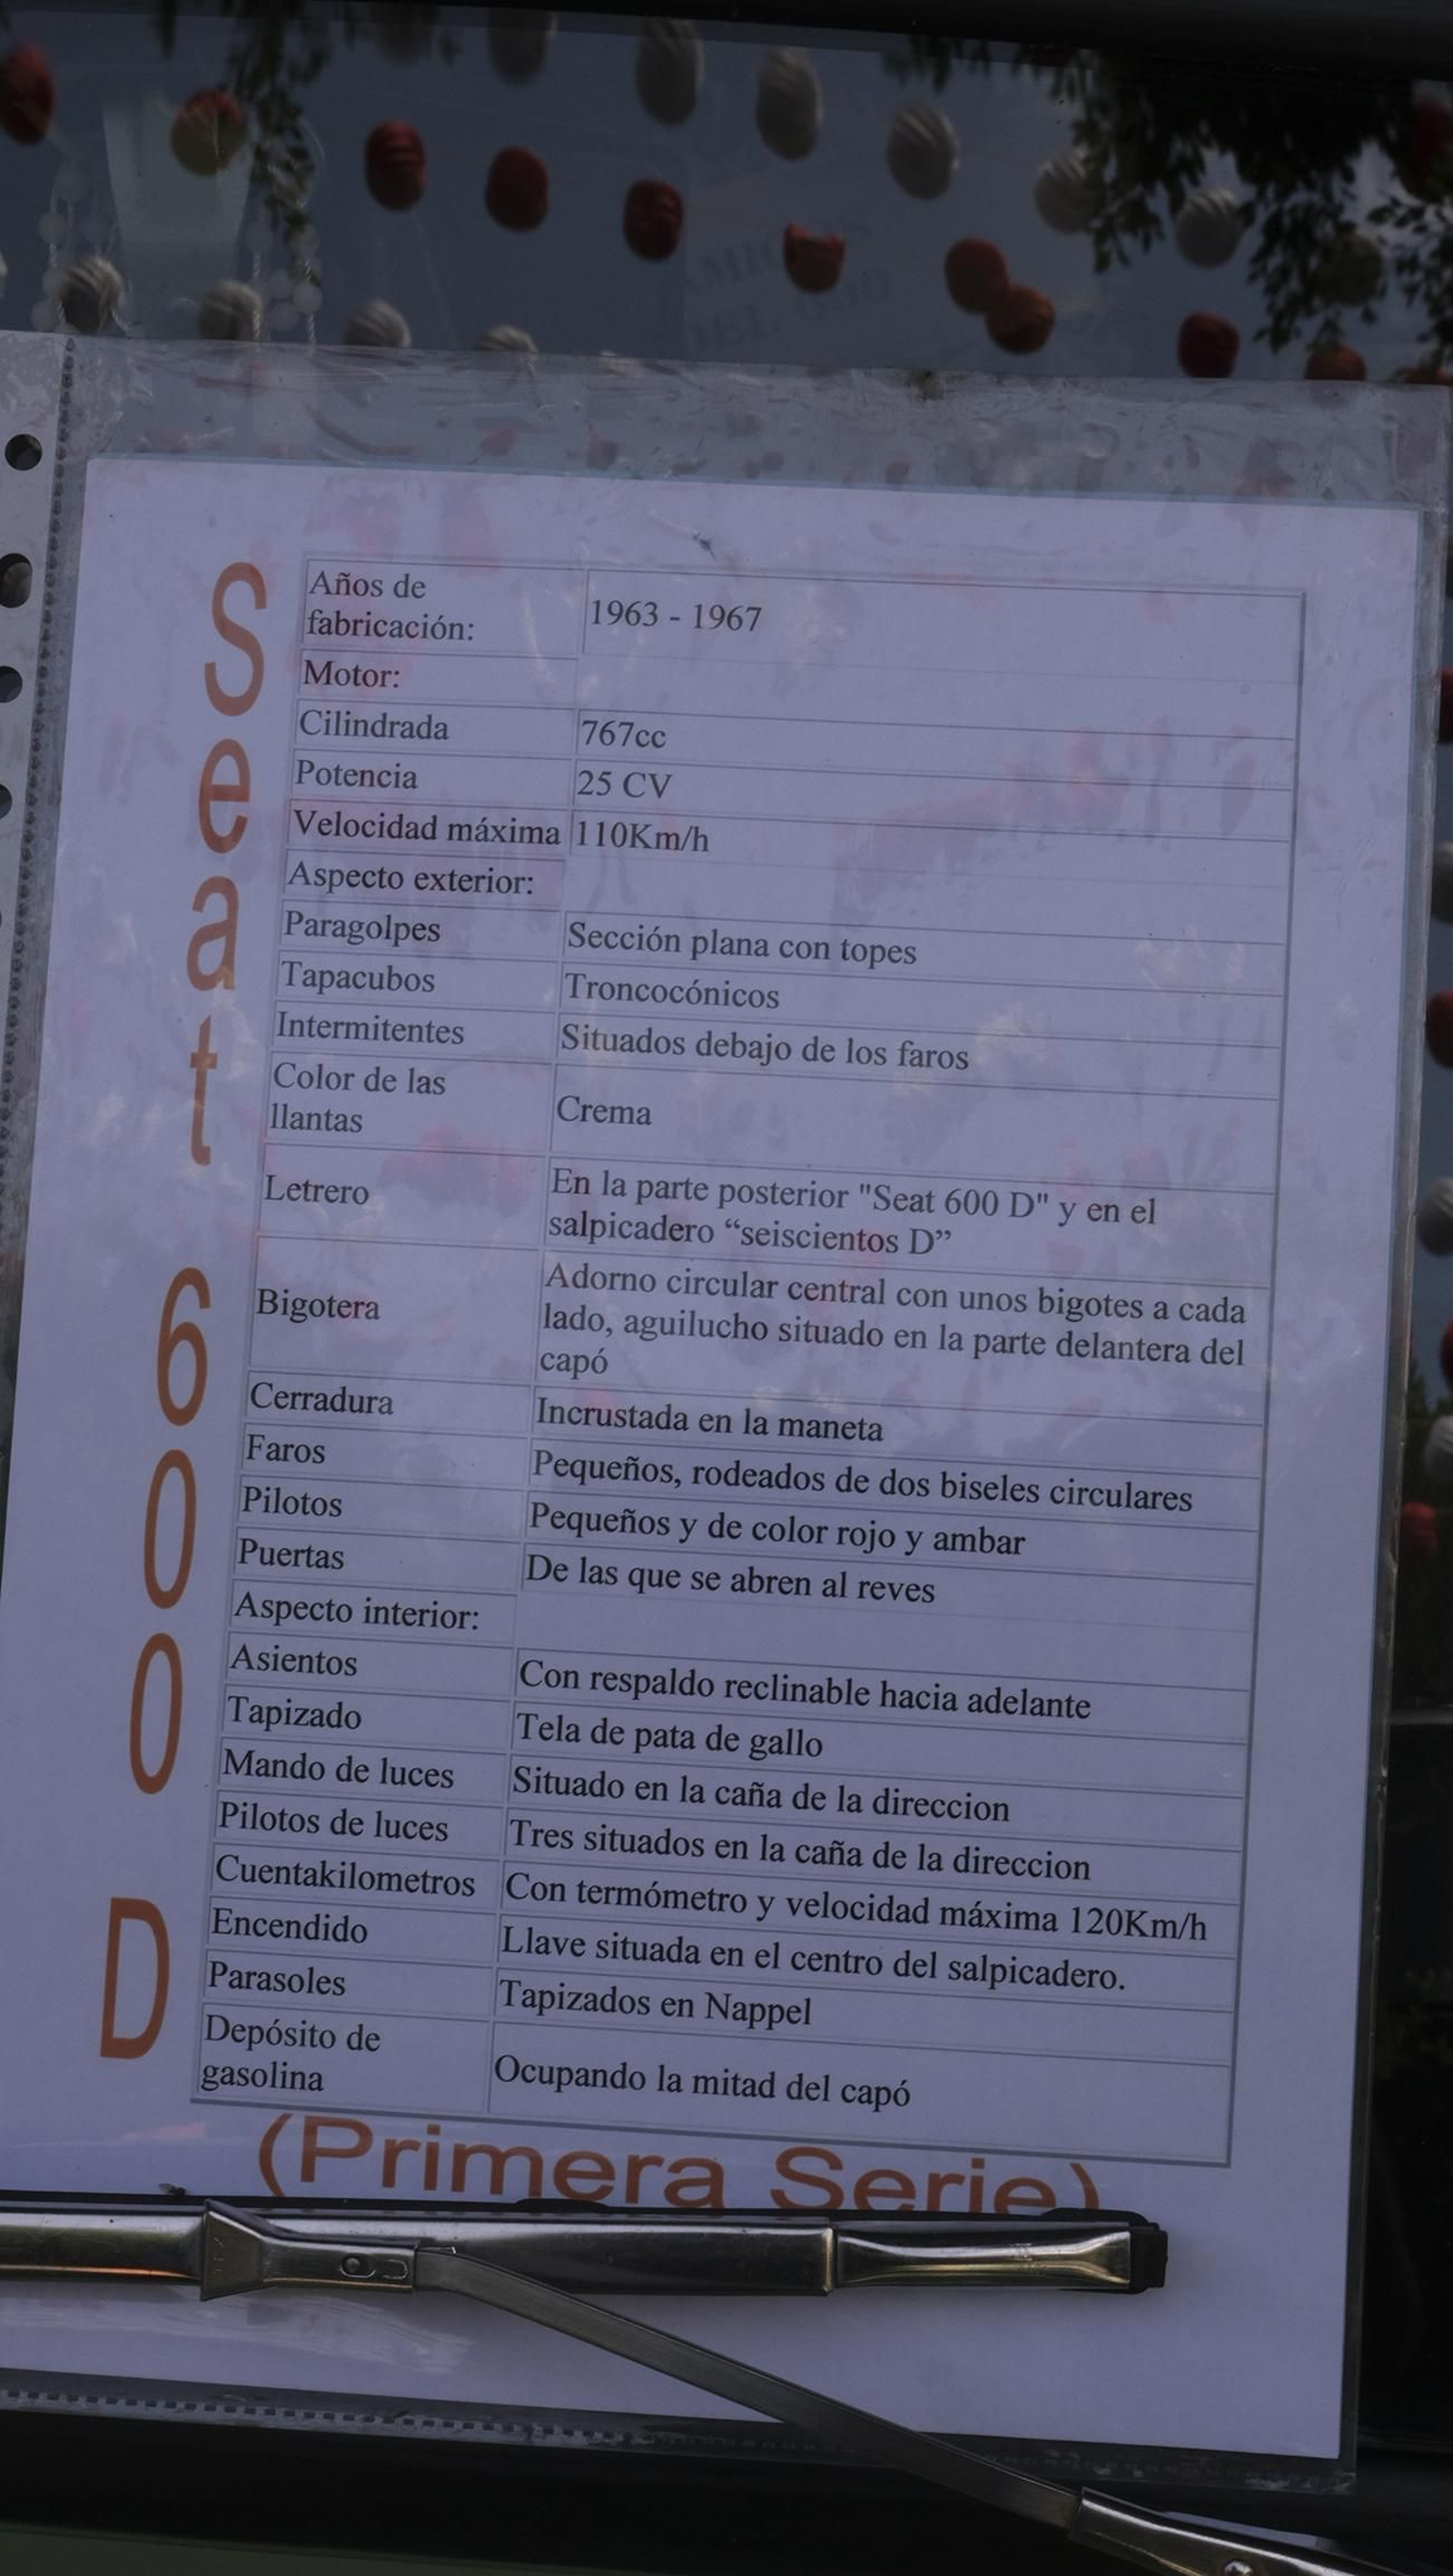 Seat 600 D
Años de
fabricación:
1963 - 1967
Motor:
Cilindrada 767cc
Potencia 25 CV
Velocidad máxima 110Km/h
Aspecto exterior:
Paragolpes Sección plana con topes
Tapacubos Troncocónicos
Intermitentes Situados debajo de los faros
Color de las
llantas
Crema
Letrero
En la parte posterior "Seat 600 D" y en el
salpicadero “seiscientos D”
Bigotera
Adorno circular central con unos bigotes a cada
lado, aguilucho situado en la parte delantera del
capó
Cerradura Incrustada en la maneta
Faros Pequeños, rodeados de dos biseles circulares
Pilotos Pequeños y de color rojo y ambar
Puertas De las que se abren al reves
Aspecto interior:
Asientos Con respaldo reclinable hacia adelante
Tapizado Tela de pata de gallo
Mando de luces Situado en la caña de la direccion
Pilotos de luces Tres situados en la caña de la direccion
Cuentakilometros Con termómetro y velocidad máxima 120Km/h
Encendido Llave situada en el centro del salpicadero.
Parasoles Tapizados en Nappel
Depósito de
gasolina
Ocupando la mitad del capó
(Primera Serie)